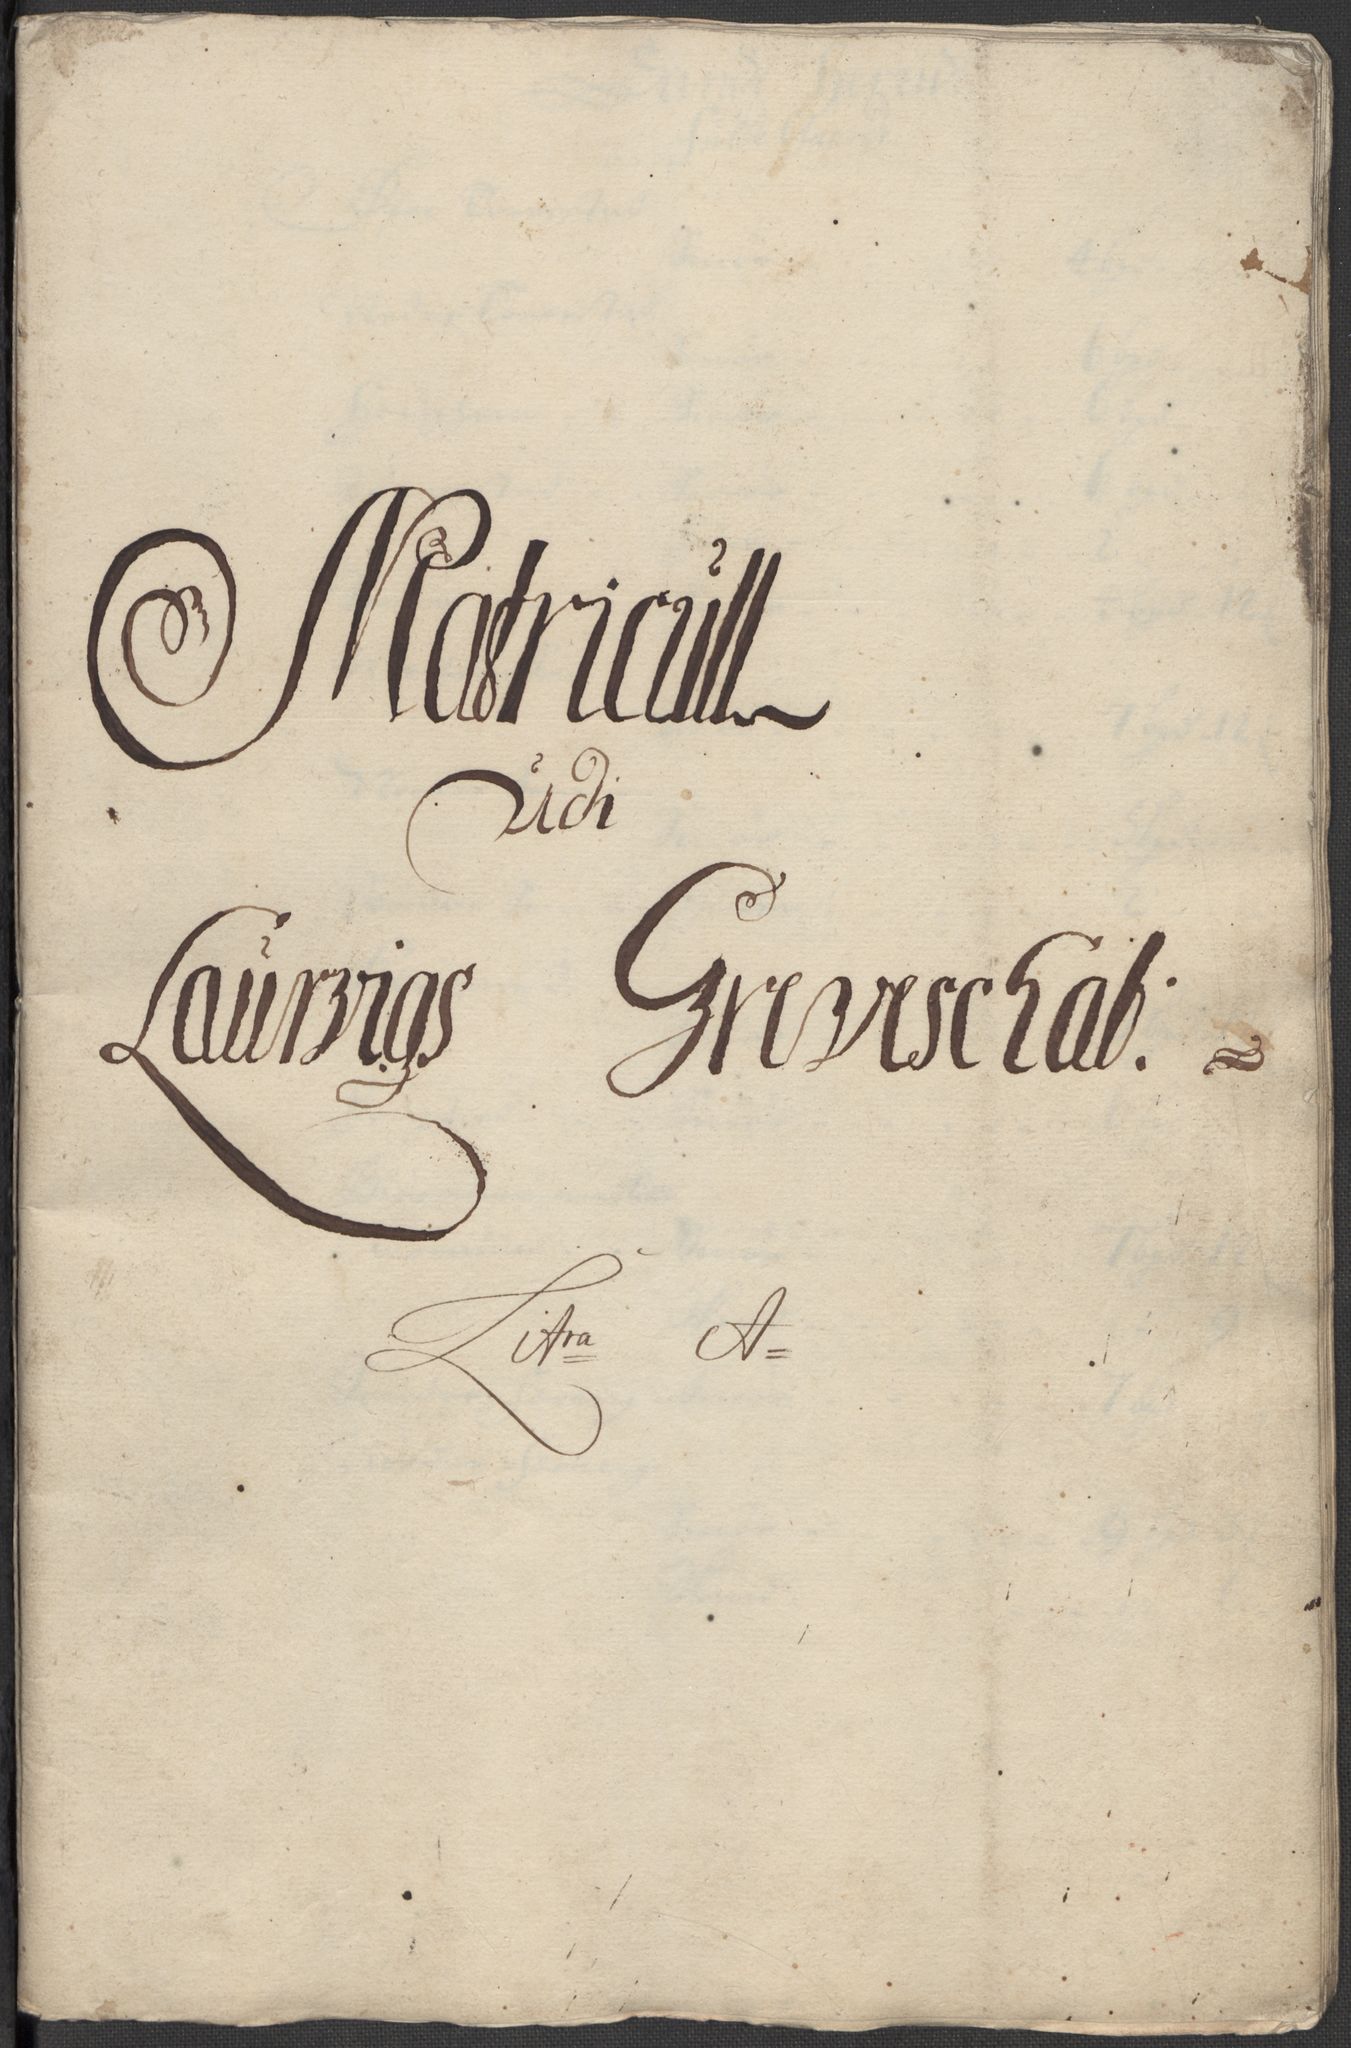 Matricull
Udi
Laurvigs Greveschab.
Litra A=